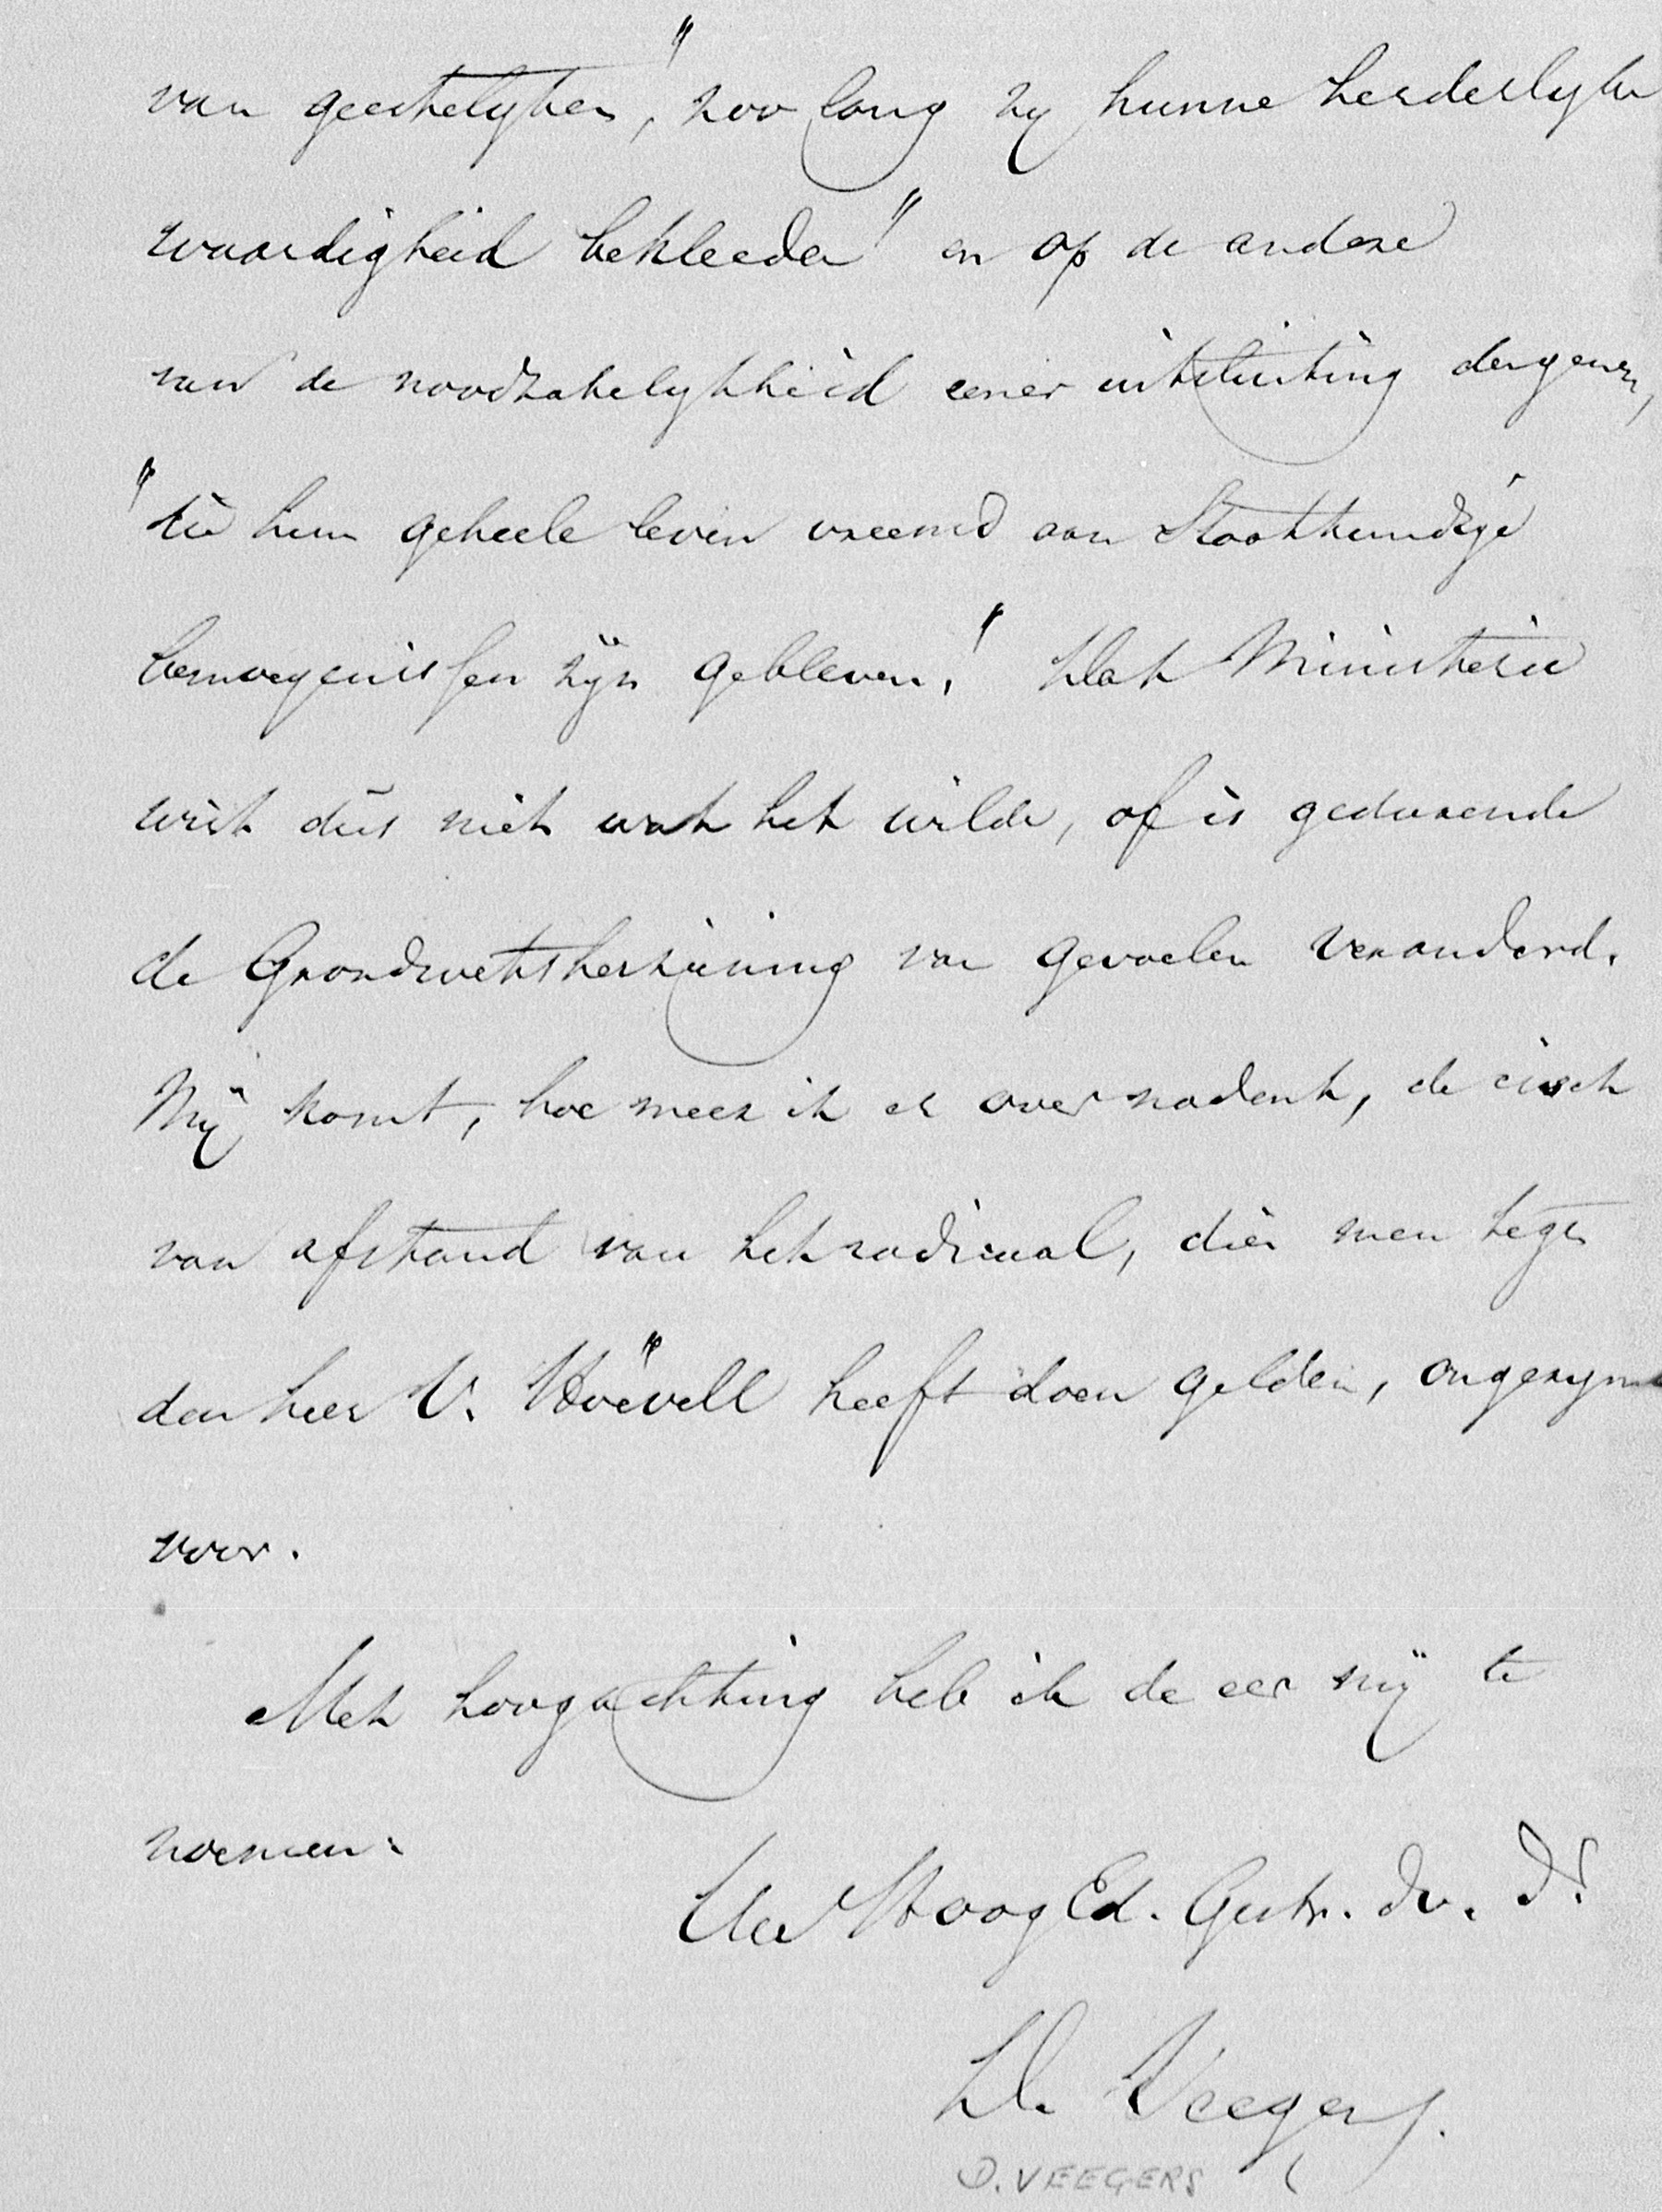 van geestelyken, "zoo lang zy hunne herderlyke
waardigheid bekleeden" en op de andere
van de noodzakelykheid eener uitsluiting dergenen,
"die hun geheele leven vreemd aan Staatkundige
bemoeyenissen zijn gebleven." Dat Ministerie
wist dus niet wat het wilde, of is gedurende
de Grondwetsherziening van gevoelen veranderd.
Mij komt, hoe meer ik er over nadenk, de eisch
van afstand van het radicaal, dien men tegen
den heer V. Hoëvell heeft doen gelden, ongerymd
voor.
Met hoogachting heb ik de eer mij te
noemen:
Uw HoogEd. Gestr. dv. Dr
D. Veegers.
D. VEEGERS